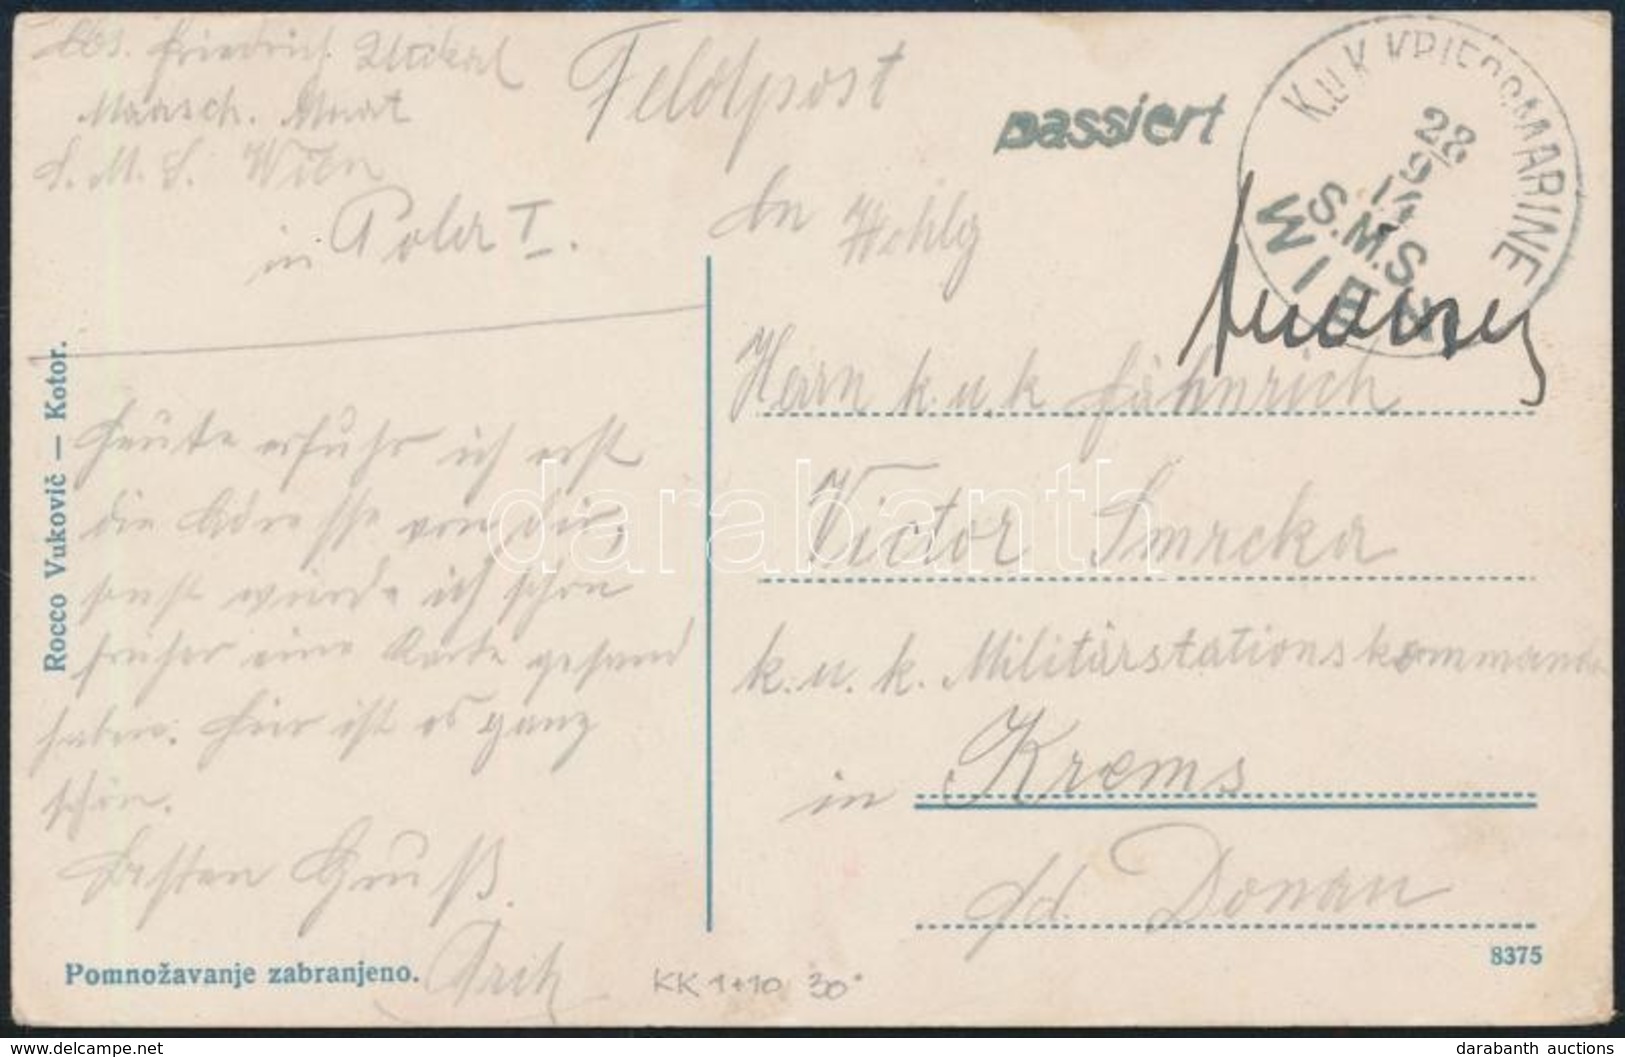 Abs. Friedrich
Maasch. Maat
S. M. S. Wien
in Pola I.
Feldpost
passiert
K.u.K. KRIEGSMARINE
28
9
17
S.M.S.
WIEN
Rocco Vukovič — Kotor.
Heute erfuhr ich erst
die Adresse von dir,
sonst würde ich schon
früher eine Karte gesand
haben. Hier ist es ganz
schön.
Besten Gruß.
Pomnožavanje zabranjeno.
An Wohlg
Herrn k.u.k Fähnrich
Victor Smrcka
k. u. k. Militärstationskommando
in Krems
a/d. Donau
8375
KK 1+10 30°
darabanth
darabanth auctions
www.delcampe.net